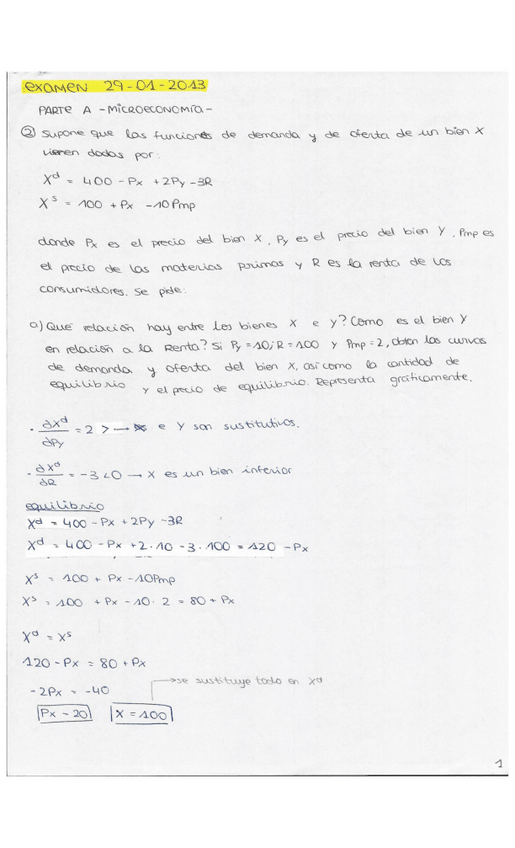 examen 29-01-2013
PARTE A -MICROECONOMÍA-
② Supone que las funciones de demanda y de oferta de un bien X
vienen dadas por:
Xᵈ = 400 - Px + 2Py - 3R
Xˢ = 100 + Px - 10Pmp
donde Px es el precio del bien X, Py es el precio del bien Y, Pmp es
el precio de las materias primas y R es la renta de los
consumidores. Se pide:
a) Qué relación hay entre los bienes X e Y? Cómo es el bien Y
en relación a la Renta? Si Py = 10; R = 100 y Pmp = 2, obten las curvas
de demanda y oferta del bien X, así como la cantidad de
equilibrio y el precio de equilibrio. Representa gráficamente.
· ∂Xᵈ/∂Py = 2 > → X e Y son sustitutivos.
· ∂Xᵈ/∂R = -3 < 0 → X es un bien inferior
equilibrio
Xᵈ = 400 - Px + 2Py - 3R
Xᵈ = 400 - Px + 2·10 - 3·100 = 120 - Px
Xˢ = 100 + Px - 10Pmp
Xˢ = 100 + Px - 10·2 = 80 + Px
Xᵈ = Xˢ
120 - Px = 80 + Px
→ se sustituye todo en Xᵈ
-2Px = -40
Px - 20 X = 100
1